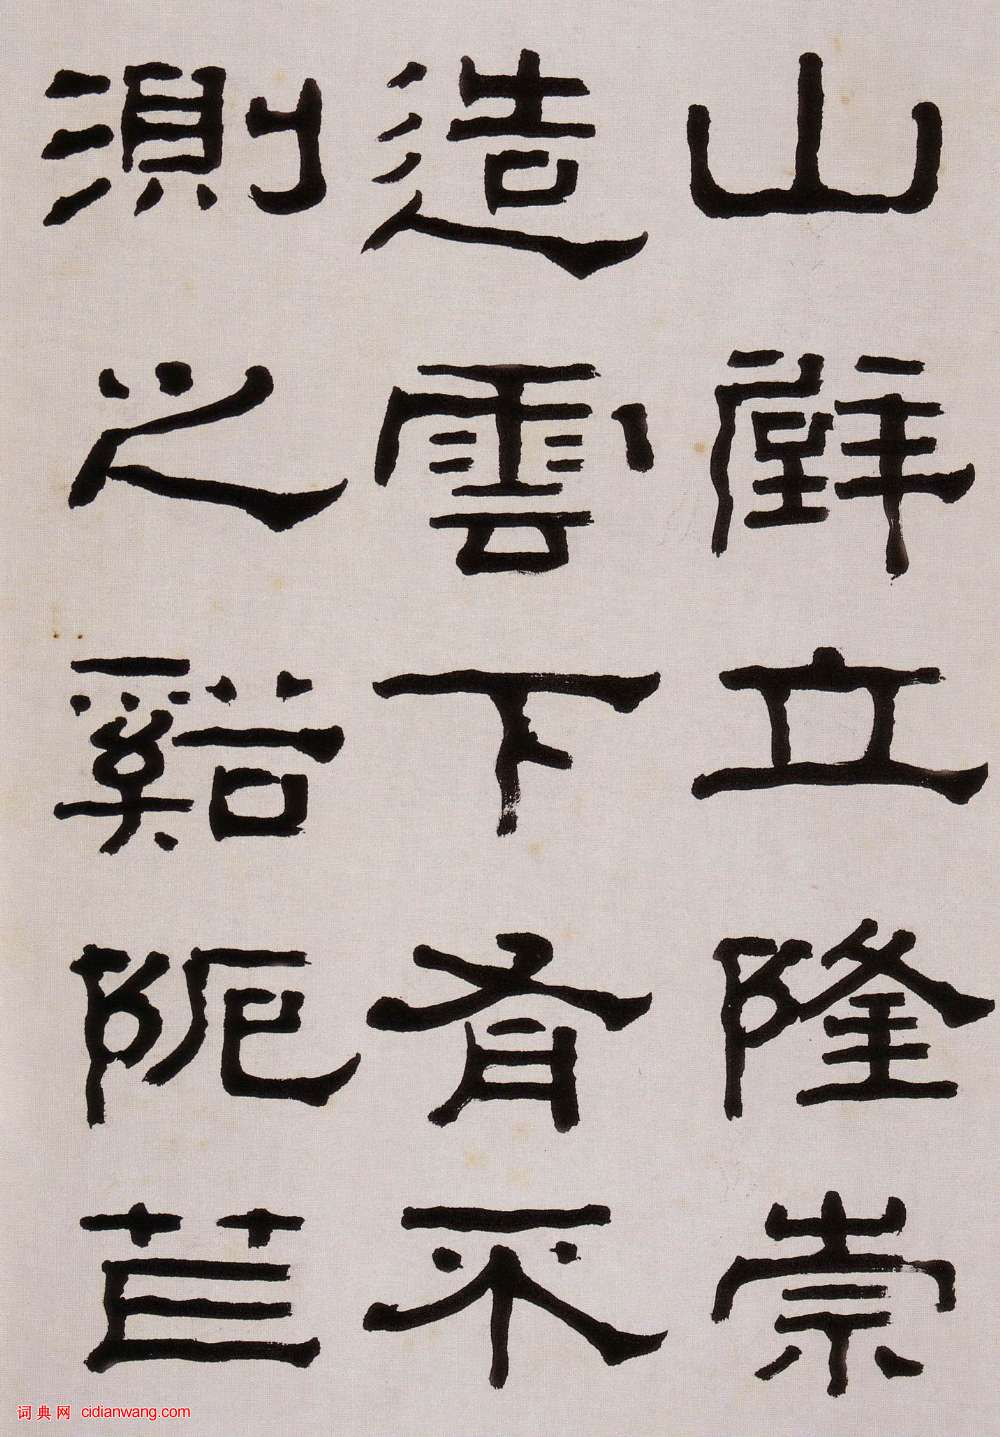 山壁立隆崇
造雲下有不
測之谿阨苲
词典网 cidianwang.com